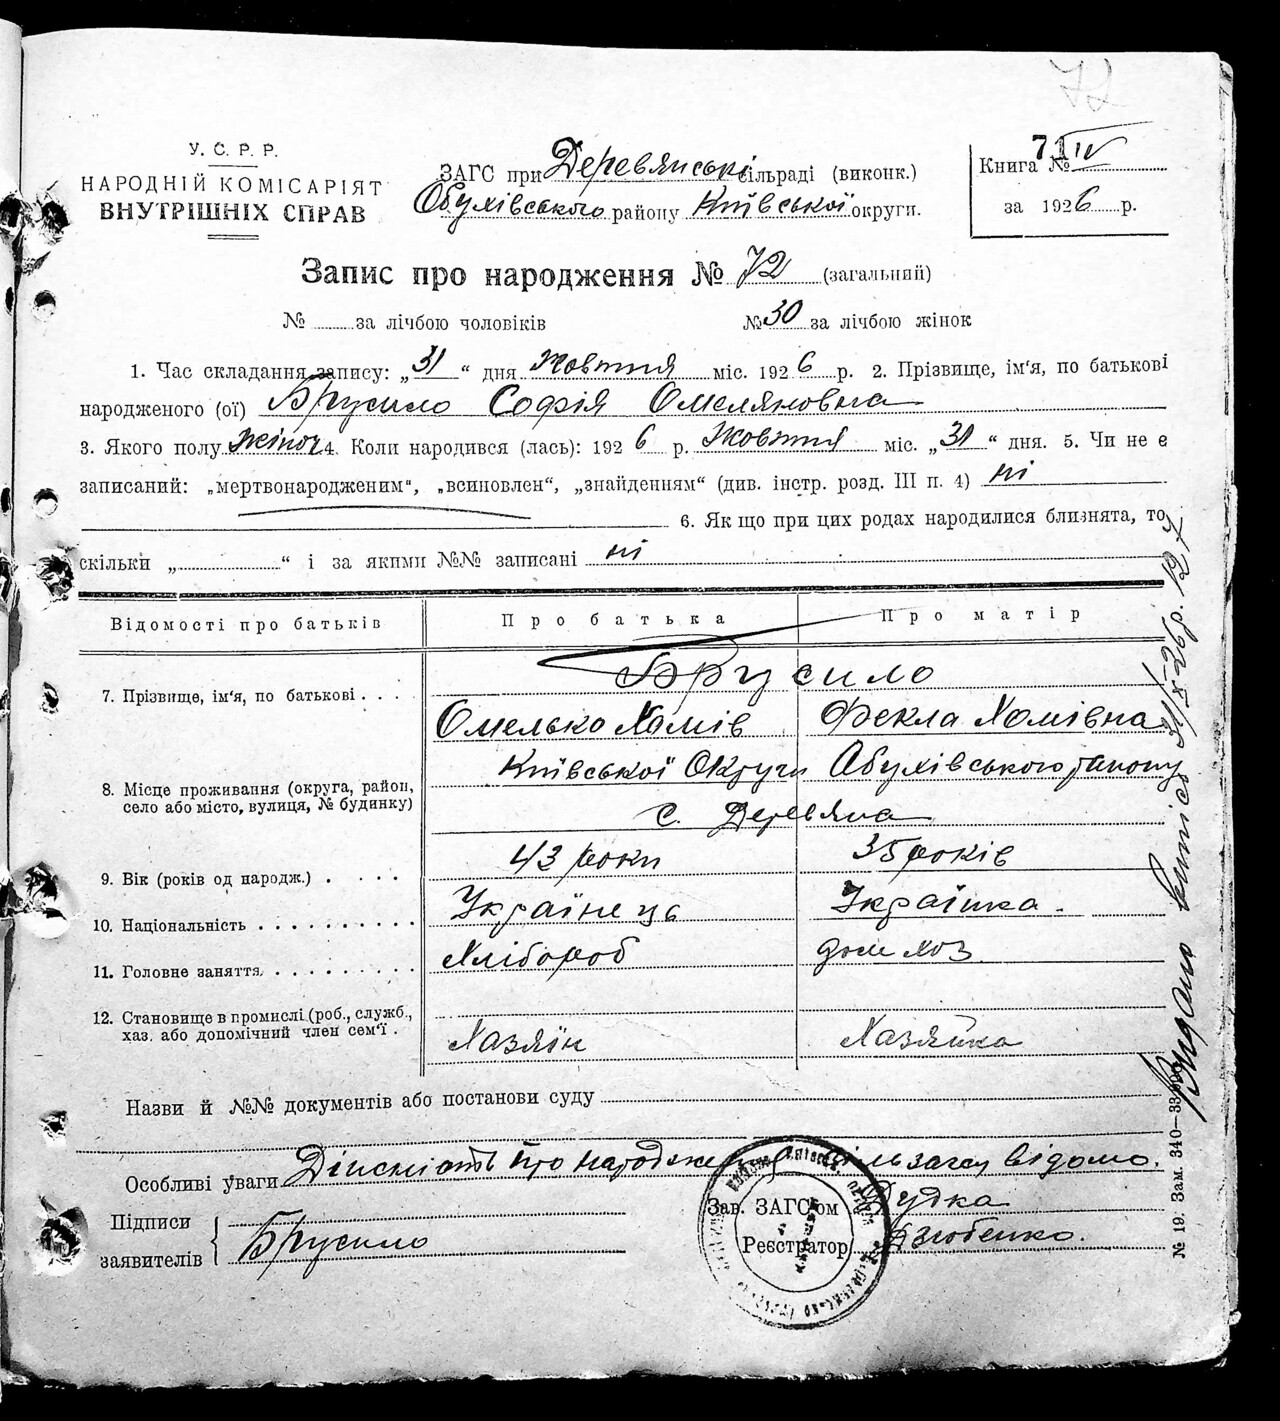 72
У. С. Р. Р.
НАРОДНІЙ КОМІСАРІЯТ
ВНУТРІШНІХ СПРАВ
ЗАГС при Деревянські сільраді (виконк.)
Обухівського району Київської округи.
Книга № 71 IV
за 1926 р.
Запис про народження № 72 (загальний)
№ за лічбою чоловіків № 30 за лічбою жінок
1. Час складання запису: „31“ дня Жовтня міс. 1926 р. 2. Прізвище, ім'я, по батькові
народженого (ої) Брусило Софія Омеляновна
3. Якого полу жіноч 4. Коли народився (лась): 1926 р. Жовтня міс. „31“ дня. 5. Чи не є
записаний: „мертвонародженим“, „всиновлен“, „знайденням“ (див. інстр. розд. III п. 4) ні
6. Як що при цих родах народилися близнята, то
скільки „ “ і за якими №№ записані ні
Відомості про батьків Про батька Про матір
Брусило
7. Прізвище, ім'я, по батькові . . . . Омелько Хомів Фекла Хомівна
Київської Округи Обухівського району
8. Місце проживання (округа, район,
село або місто, вулиця, № будинку)
с. Деревяна
9. Вік (років од народж.) . . . . 43 роки 35 років
10. Національність . . . . . . . . . . Українець Українка.
11. Головне заняття. . . . . . . . . . Хлібороб дом хоз.
12. Становище в промислі (роб., служб.,
хаз. або допомічний член сем'ї .
Хазяїн Хазяйка
Назви й №№ документів або постанови суду
Особливі уваги Дійсність про народження сільзагсу відомо.
Підписи
заявителів
Брусило
Зав. ЗАГС'ом Дудка
Реєстратор Дзюбенко.
Видано витпис 31/X-26р. 127
№ 19. Зам. 340—33.000